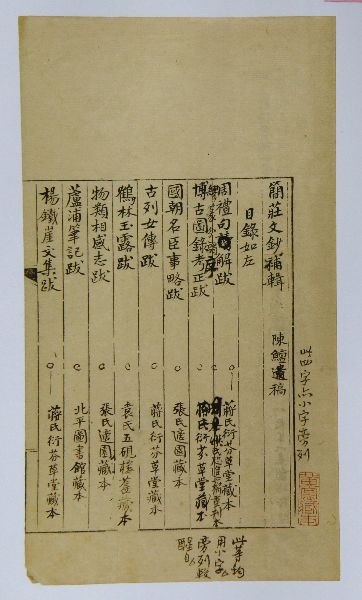 此四字亦小字旁列
簡莊文鈔補輯 陳鱣遺稿
目錄如左
周禮句解跋 蔣氏衍芬草堂藏本
博古圖錄考正跋 蔣氏衍芬草堂藏本
國朝名臣事略跋 張氏適園藏本
古列女傳跋 蔣氏衍芬草堂藏本
鶴林玉露跋 袁氏五硯樓舊藏本
物類相感志跋 張氏適園藏本
蘆浦筆記跋 北平圖書館藏本
楊鐵崖文集跋 蔣氏衍芬草堂藏本
此等均
用小字
旁列較
醒目